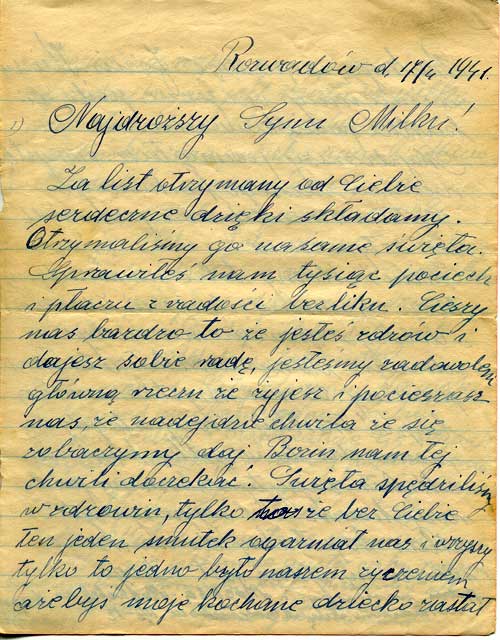 Rozwadów d. 17/4 1941.
1) Najdroższy Synu Milku!
Za list otrzymany od Ciebie
serdeczne dzięki składamy.
Otrzymaliśmy go na same święta.
Sprawiłeś nam tysiąc pociech
i płaczu z radości bez liku. Cieszy
nas bardzo to że jesteś zdrów i
dajesz sobie radę, jesteśmy zadowoleni
główną rzeczą że żyjesz i pocieszasz
nas, że nadejdzie chwila że się
zobaczymy daj Boże nam tej
chwili doczekać. Święta spędziliśmy
w zdrowiu, tylko że bez Ciebie
ten jeden smutek ogarniał nas i wszyscy
tylko to jedno było naszem życzeniem
ażebyś moje kochane dziecko został